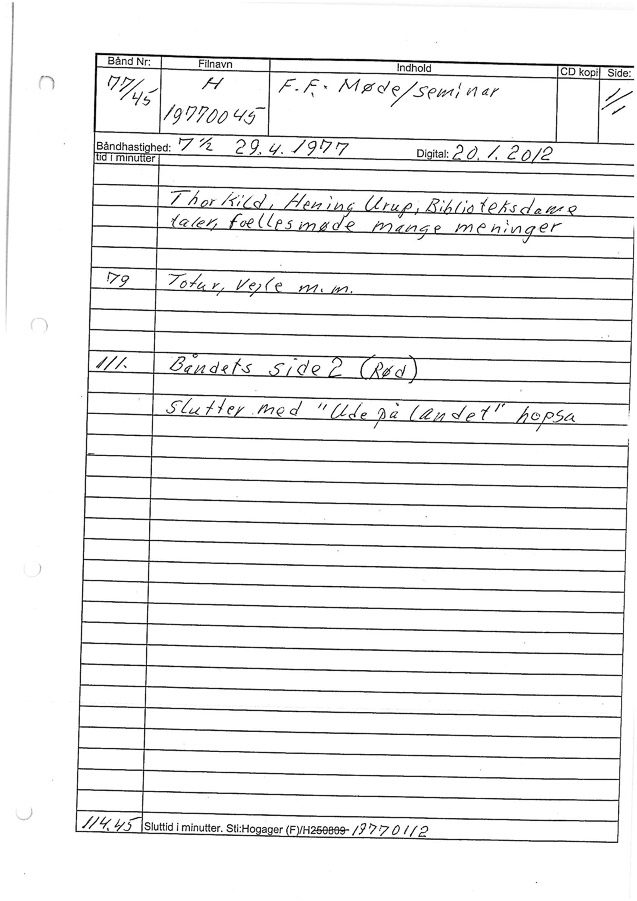 Bånd Nr: Filnavn Indhold CD kopi Side:
77/45 H F.F. Møde/seminar 1/1
19770045
Båndhastighed: 7½ 29.4.1977 Digital: 20.1.2012
tid i minutter
Thorkild, Hening Urup, Biblioteksdame
taler, fællesmøde mange meninger
79 Totur, Vejle m.m.
111. Båndets side 2 (Rød)
slutter med "Ude på landet" hopsa
114.45 Sluttid i minutter. Sti:Hogager (F)/H250809- 19770112